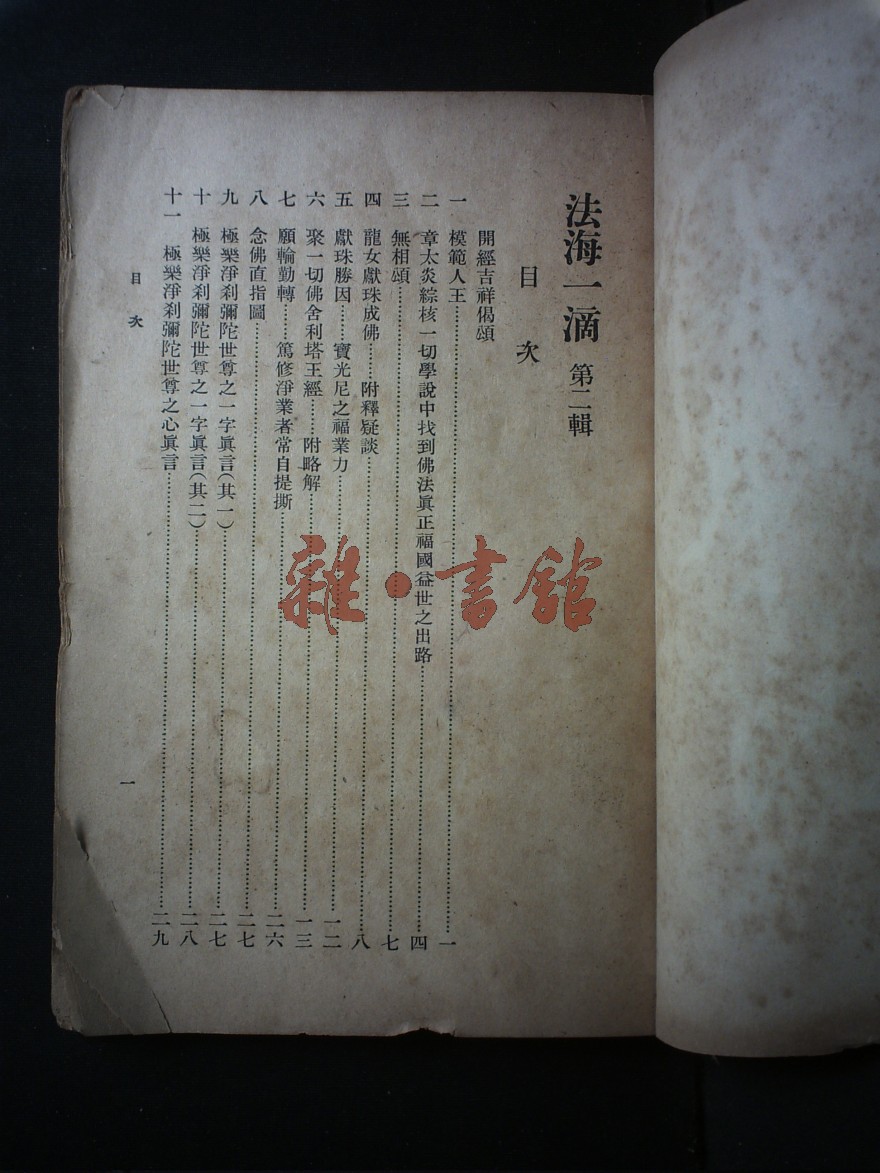 法海一滴 第二輯
目次
開經吉祥偈頌
一 模範人王……一
二 章太炎綜核一切學說中找到佛法眞正福國益世之出路……四
三 無相頌……七
四 龍女獻珠成佛……附釋疑談……八
五 獻珠勝因……寶光尼之福業力……一二
六 聚一切佛舍利塔王經……附略解……一三
七 願輪勤轉……篤修淨業者常自提撕……二六
八 念佛直指圖……二七
九 極樂淨刹彌陀世尊之一字眞言(其一)……二七
十 極樂淨刹彌陀世尊之一字眞言(其二)……二八
十一 極樂淨刹彌陀世尊之心眞言……二九
目次
一
雜·書館